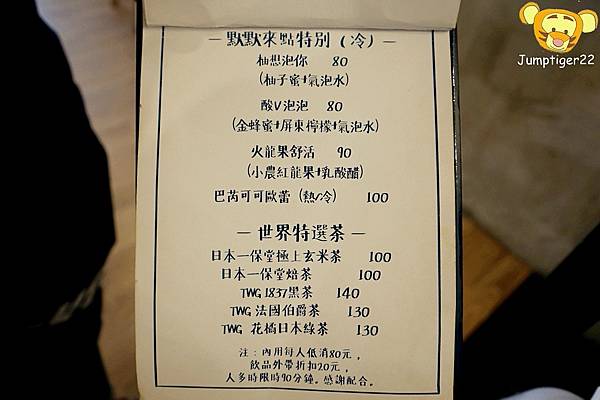 Jumptiger22
— 默默來點特別 (冷) —
柚想泡你 80
(柚子蜜+氣泡水)
酸V泡泡 80
(金蜂蜜+屏東檸檬+氣泡水)
火龍果舒活 90
(小農紅龍果+乳酸醋)
巴芮可可歐蕾 (熱/冷) 100
— 世界特選茶 —
日本一保堂極上玄米茶 100
日本一保堂焙茶 100
TWG 1837黑茶 140
TWG 法國伯爵茶 130
TWG 花橘日本綠茶 130
注:內用每人低消80元,
飲品外帶折扣20元,
人多時限時90分鐘。感謝配合。